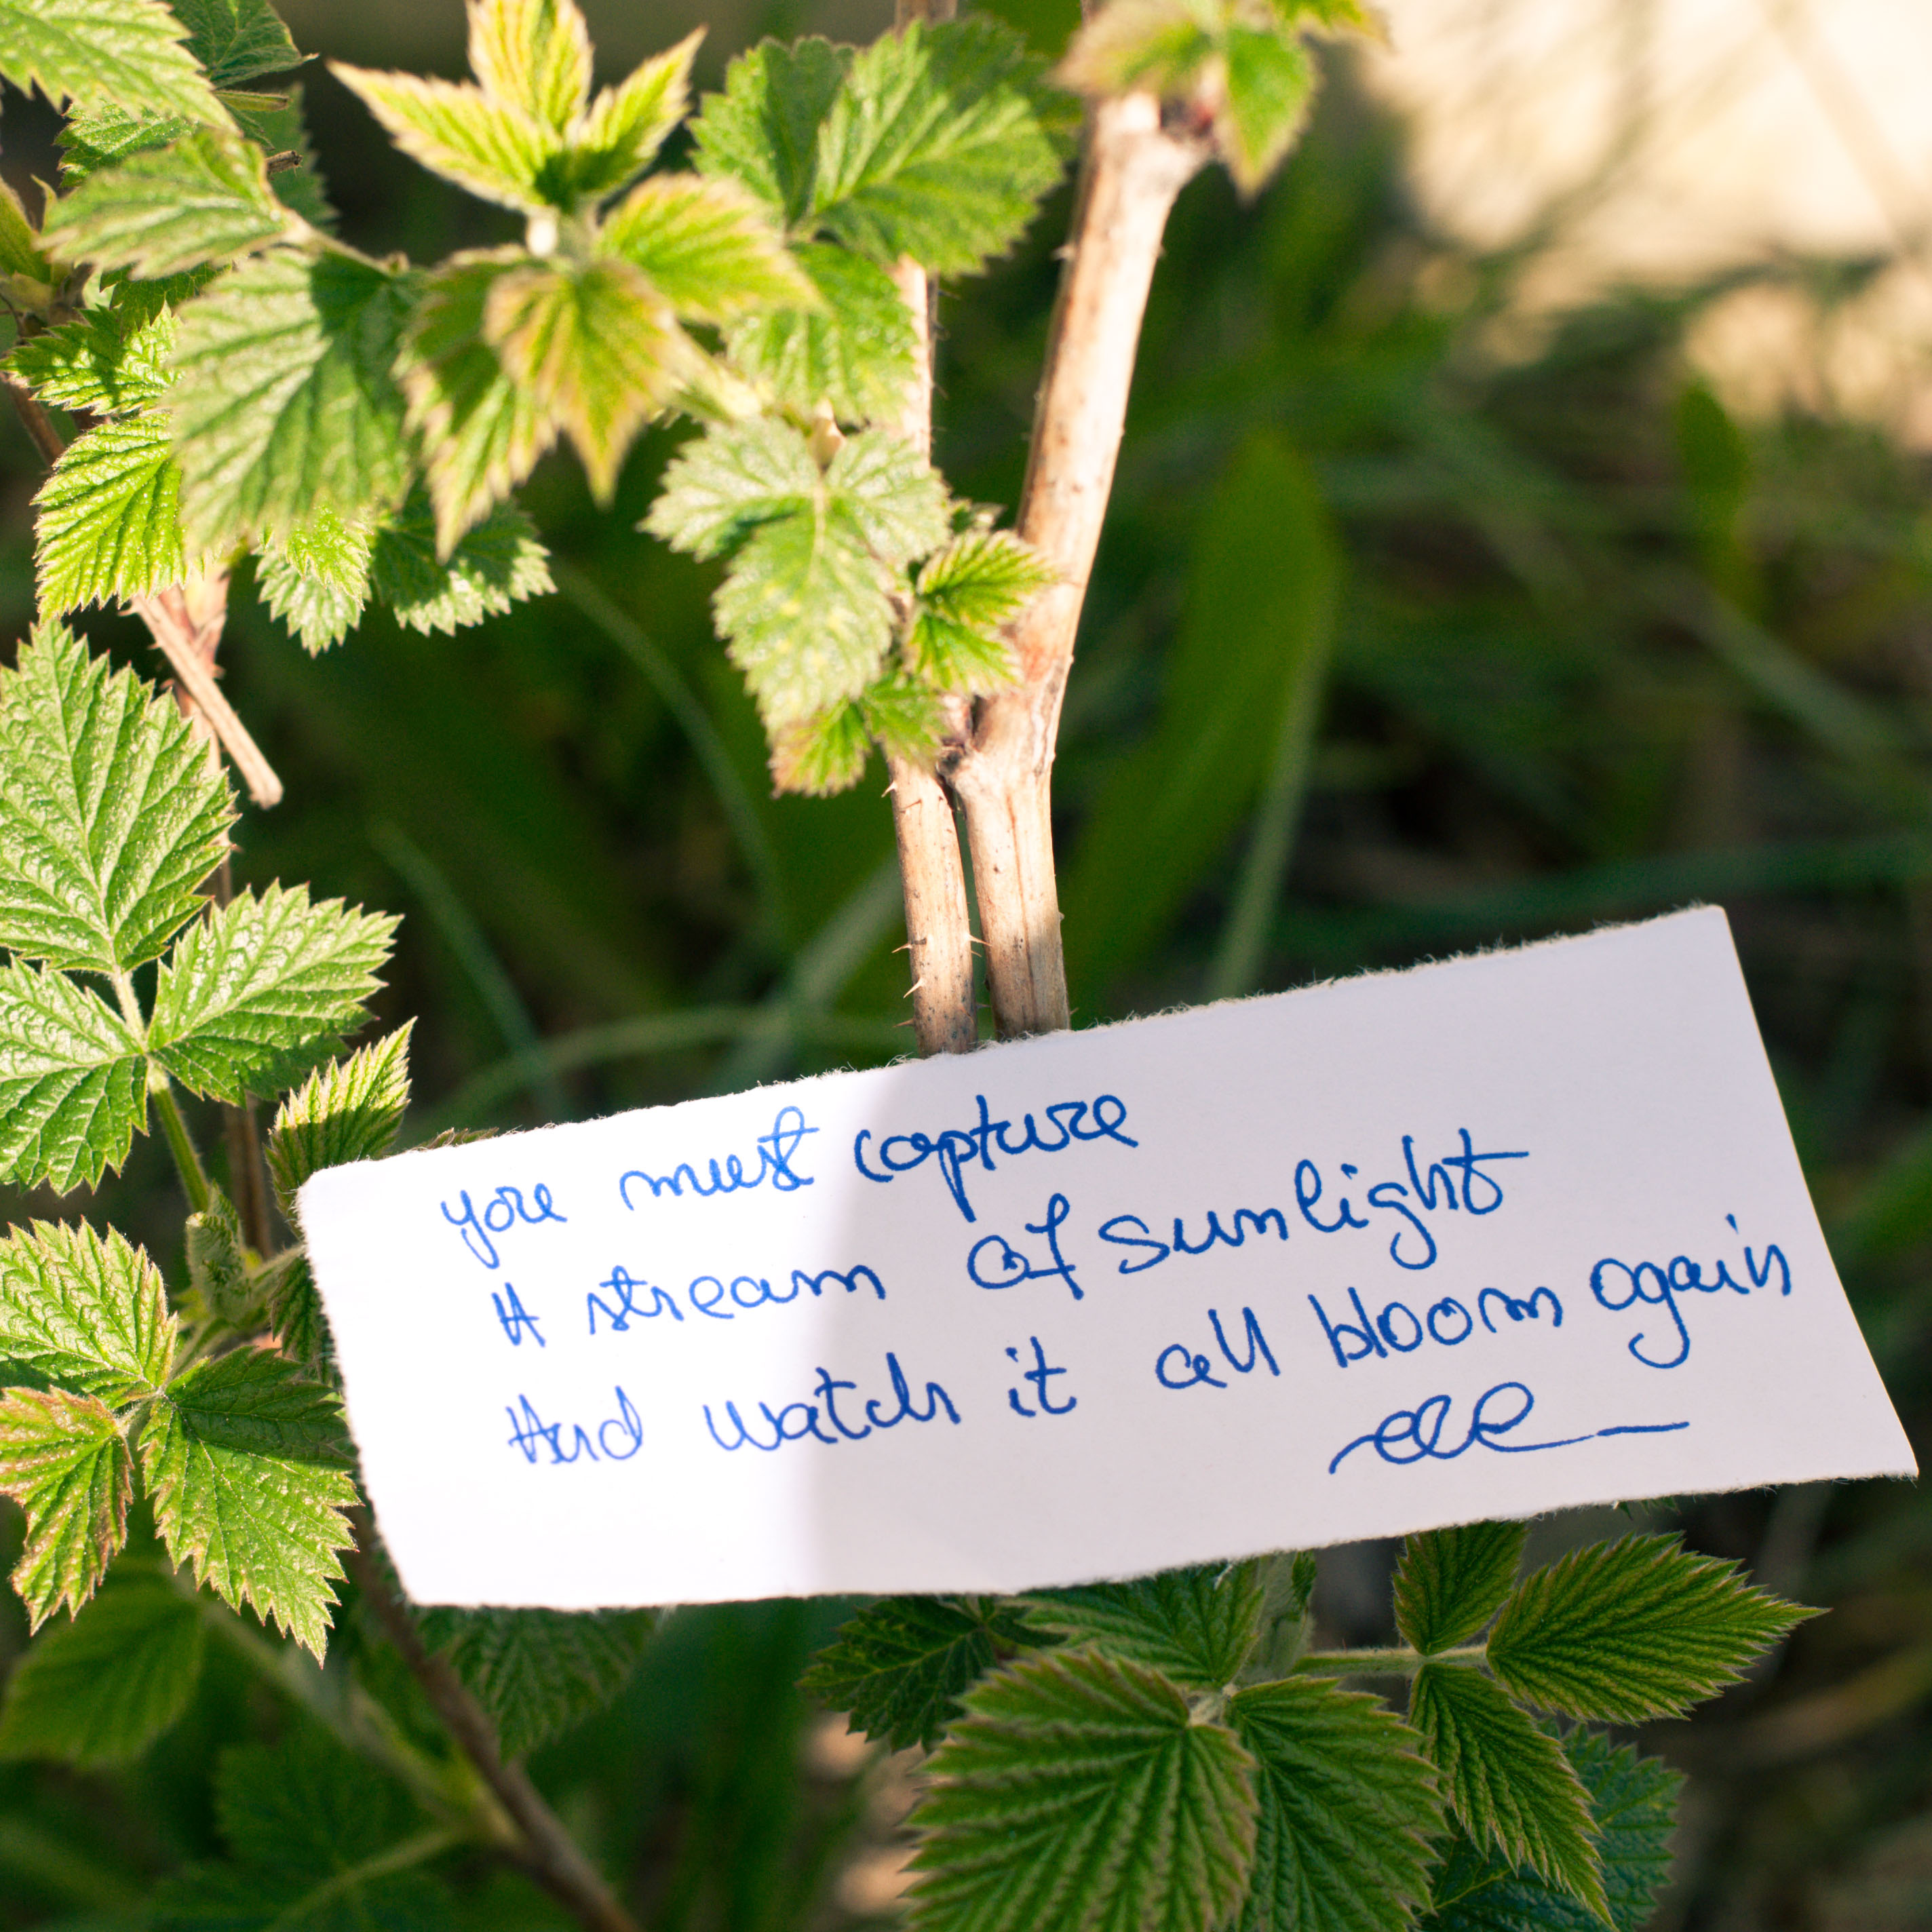 you must capture
A stream of sunlight
And watch it all bloom again